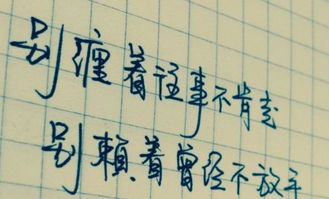 别缠着往事不肯走
别赖着曾经不放手